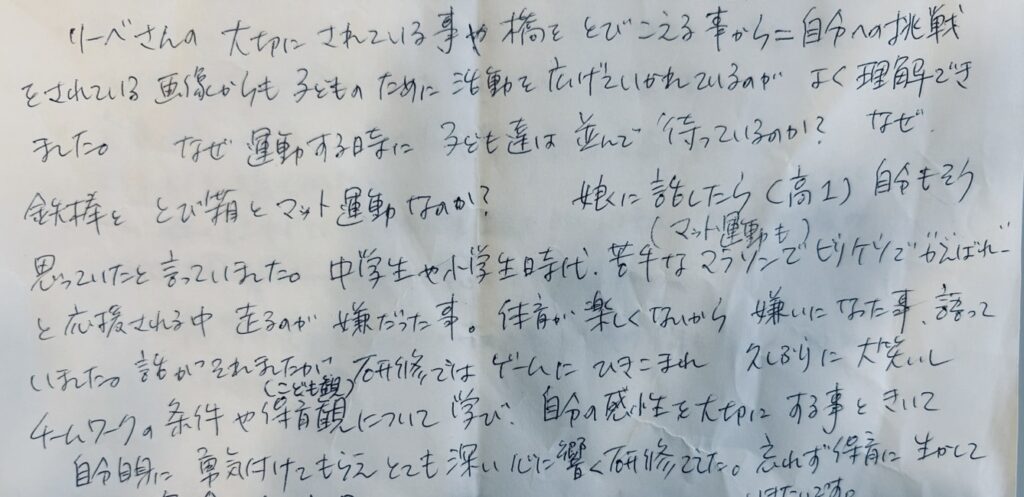 リーベさんの 大切にされている事や橋を とびこえる事から=自分への挑戦
をされている 画像からも 子どものために 活動を広げていかれているのが よく理解でき
ました。 なぜ 運動する時に 子ども達は 並んで 待っているのか? なぜ
鉄棒と とび箱と マット運動なのか? 娘に話したら(高1) 自分もそう
(マット運動も)
思っていたと言っていました。中学生や小学生時代、苦手なマラソンでビリケツで"がんばれー"
と応援される中 走るのが 嫌だった事。体育が楽しくないから 嫌いになった事、語って
いました。話がそれましたが 研修ではゲームに ひきこまれ 久しぶりに 大笑いし
(こども観)
チームワークの条件や保育観について学び、自分の感性を大切にする事ときいて
自分自身に 勇気付けてもらえ とても深い 心に響く研修でした。忘れず保育に生かして
いきたいです。